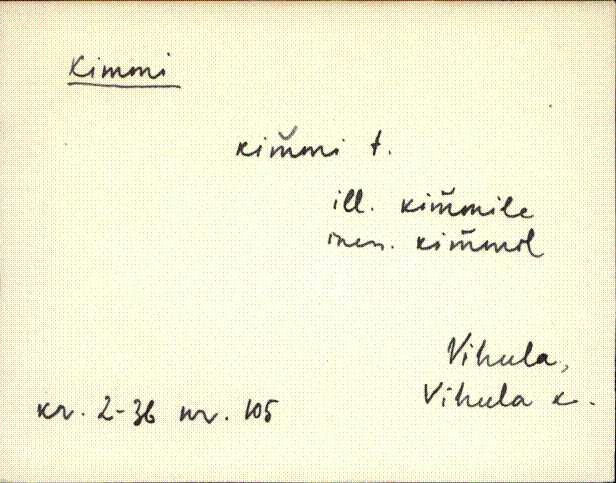 Kimmi
kim̆mi t.
ill. kim̆mile
ines. kim̆mil
Vihula,
Vihula k.
kr. 2-36 nr. 105